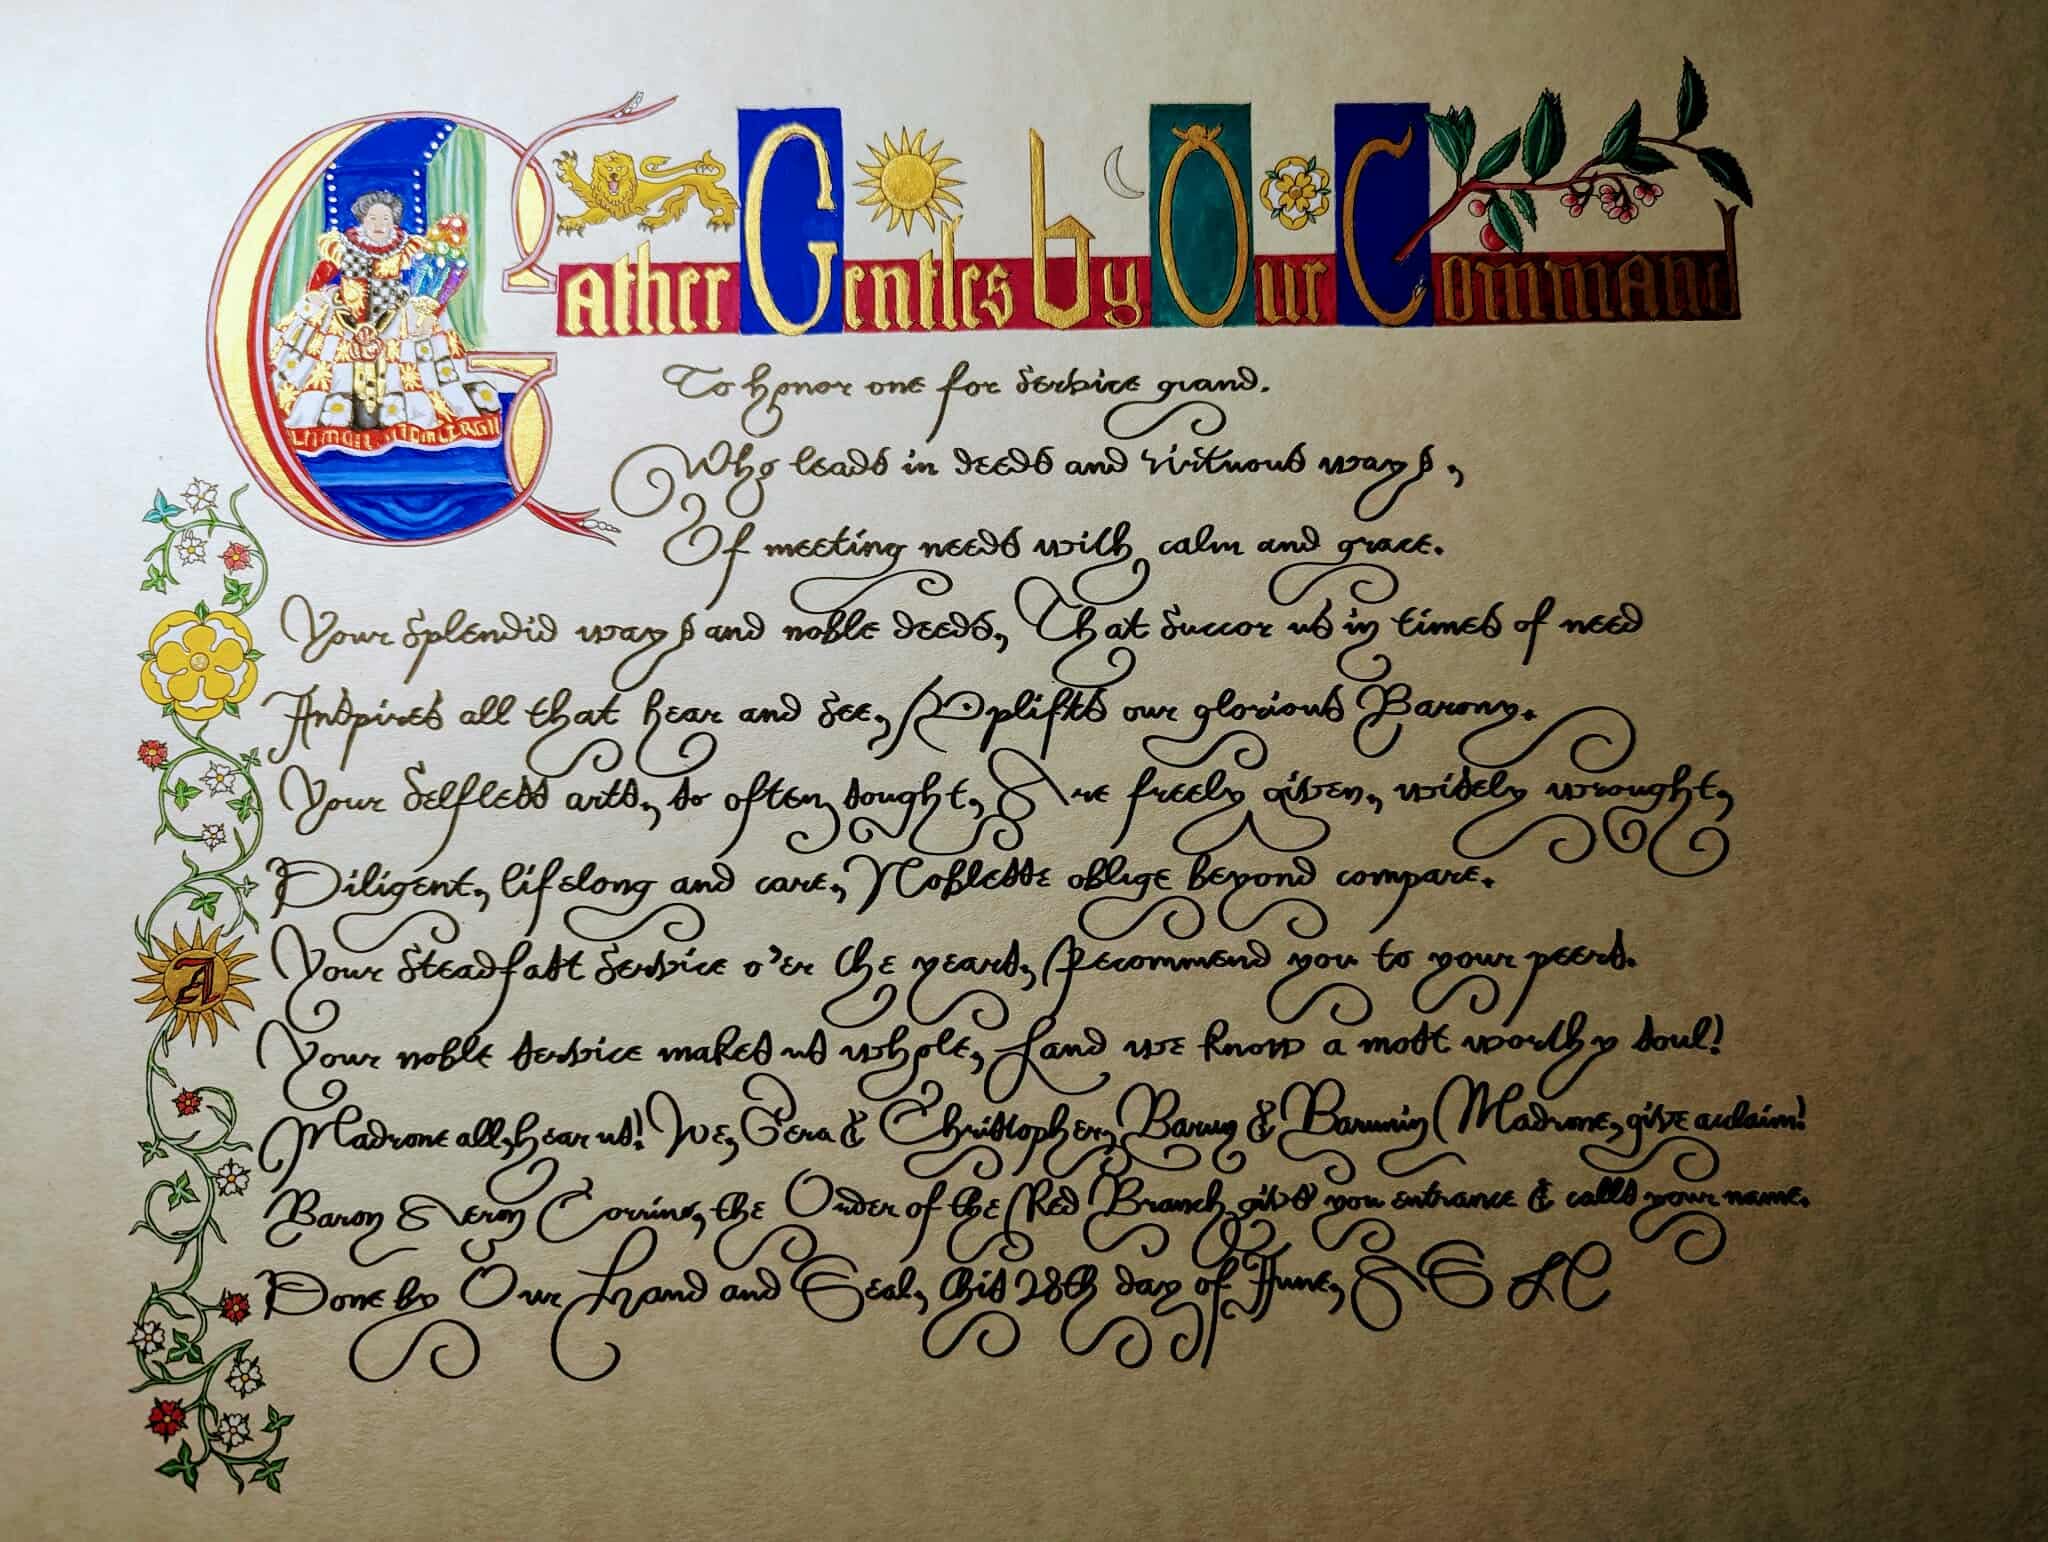 Gather Gentles by Our Command
To honor one for service grand.
Who leads in deeds and virtuous ways,
Of meeting needs with calm and grace.
Your splendid ways and noble deeds, That succor us in times of need
Inspires all that hear and see, Uplifts our glorious Barony.
Your selfless arts, so often sought, Are freely given, widely wrought,
Diligent, lifelong and care, Noblesse oblige beyond compare.
A
Your steadfast service o'er the years, Recommend you to your peers.
Your noble service makes us whole, And we know a most worthy soul!
Madrone all, hear us! We, Gera & Christopher, Barun & Barunin Madrone, give acclaim!
Baron Averon Corrine, the Order of the Red Branch gives you entrance & calls your name.
Done by Our Hand and Seal, this 28th day of June, AS LX